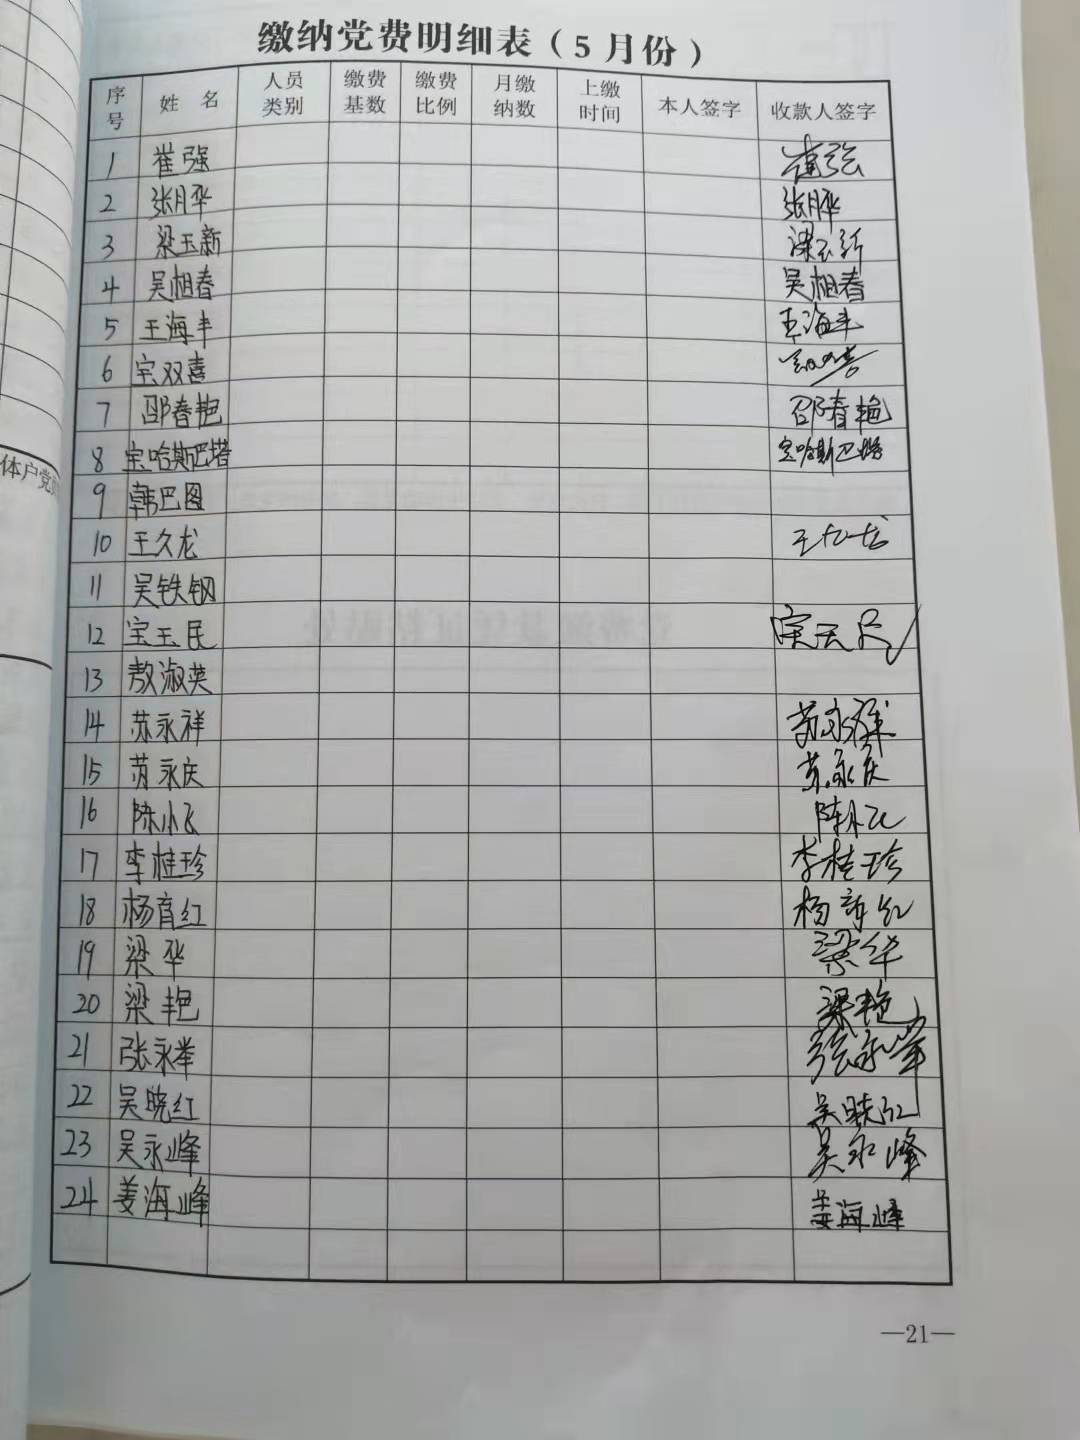 缴纳党费明细表（5月份）
序号 姓名 人员类别 缴费基数 缴费比例 月缴纳数 上缴时间 本人签字 收款人签字
1 崔强 崔强
2 张月华 张月华
3 梁玉新 梁玉新
4 吴相春 吴相春
5 王海丰 王海丰
6 宝双喜
7 邵春艳 邵春艳
体户党
8 宝哈斯巴塔 宝哈斯巴塔
9 韩巴图
10 王久龙 王九龙
11 吴铁钢
12 宝玉民 宝玉民
13 敖淑英
14 苏永祥 苏永祥
15 苏永庆 苏永庆
16 陈小飞 陈小飞
17 李桂珍 李桂珍
18 杨育红 杨育红
19 梁华 梁华
20 梁艳 梁艳
21 张永举 张永举
22 吴晓红 吴晓红
23 吴永峰 吴永峰
24 姜海峰 姜海峰
—21—